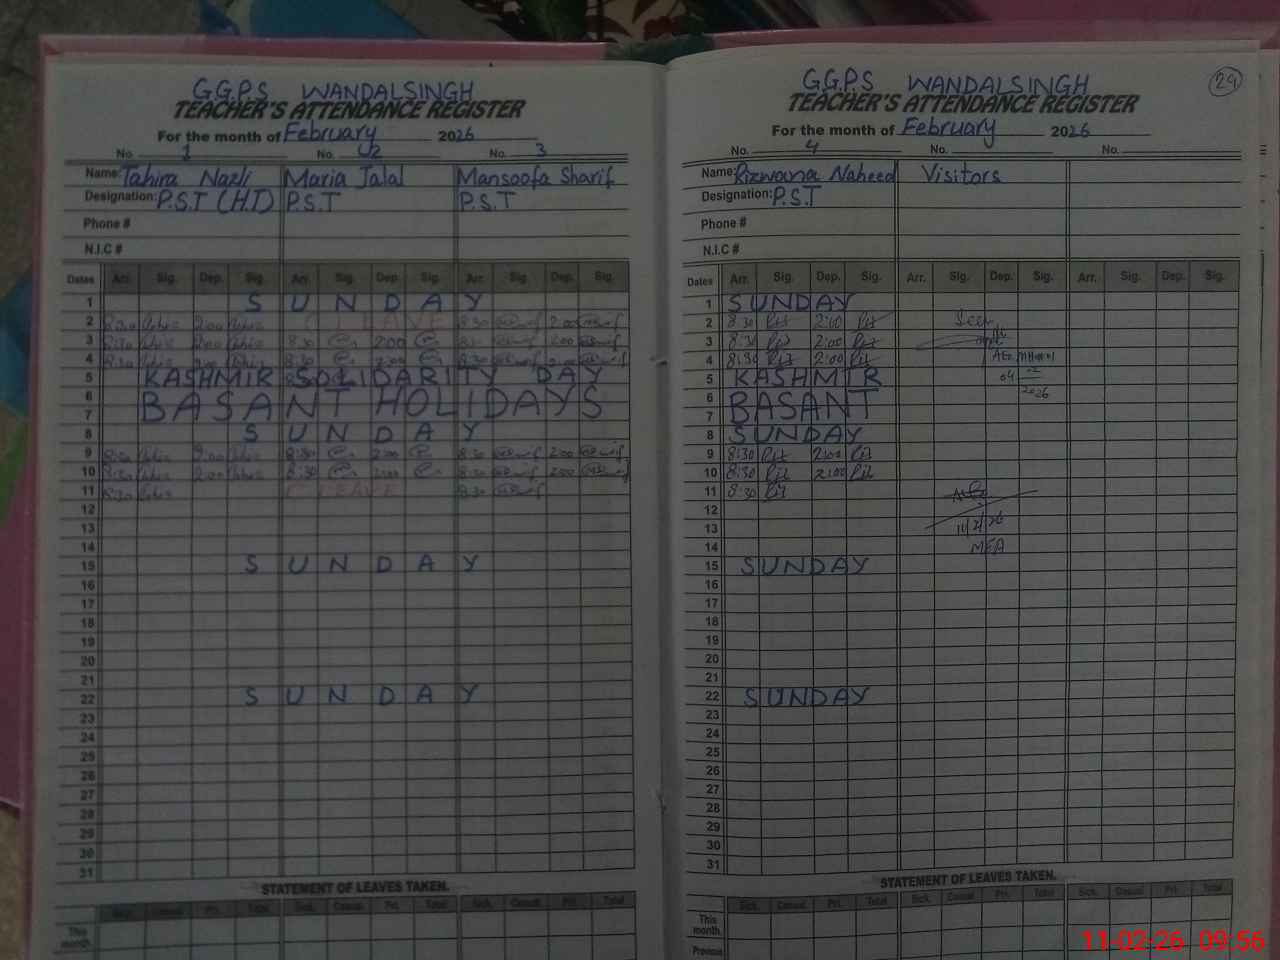 G.G.P.S WANDALSINGH
TEACHER'S ATTENDANCE REGISTER
For the month of February 2026
No. 1 No. 02 No. 3
Name: Tahira Nazli Maria Jalal Mansoofa Sharif
Designation: P.S.T (H.T) P.S.T P.S.T
Phone #
N.I.C #
Dates Arr. Sig. Dep. Sig. Arr. Sig. Dep. Sig. Arr. Sig. Dep. Sig.
1 SUNDAY
2 8:30 2:00 LEAVE 8:30 2:00
3 8:30 2:00 8:30 2:00 8:30 2:00
4 8:30 2:00 8:30 2:00 8:30 2:00
5 KASHMIR SOLIDARITY DAY
6 BASANT HOLIDAYS
7
8 SUNDAY
9 8:30 2:00 8:30 2:00 8:30 2:00
10 8:30 2:00 8:30 2:00 8:30 2:00
11 8:30 LEAVE 8:30
12
13
14
15 SUNDAY
16
17
18
19
20
21
22 SUNDAY
23
24
25
26
27
28
29
30
31
STATEMENT OF LEAVES TAKEN.
Sick. Casual Pri. Total Sick. Casual Pri. Total Sick. Casual Pri. Total
This month.
29
G.G.P.S WANDALSINGH
TEACHER'S ATTENDANCE REGISTER
For the month of February 2026
No. 4 No. No.
Name: Rizwana Naheed Visitors
Designation: P.S.T
Phone #
N.I.C #
Dates Arr. Sig. Dep. Sig. Arr. Sig. Dep. Sig. Arr. Sig. Dep. Sig.
1 SUNDAY
2 8:30 2:00 Seen
3 8:30 2:00
4 8:30 2:00
5 KASHMIR 04 02
6 BASANT 2026
7
8 SUNDAY
9 8:30 2:00
10 8:30 2:00
11 8:30
12
13
14 MEA
15 SUNDAY
16
17
18
19
20
21
22 SUNDAY
23
24
25
26
27
28
29
30
31
STATEMENT OF LEAVES TAKEN.
Sick. Casual Pri. Total Sick. Casual Pri. Total Sick. Casual Pri. Total
This month.
Previous
11-02-26 09:56